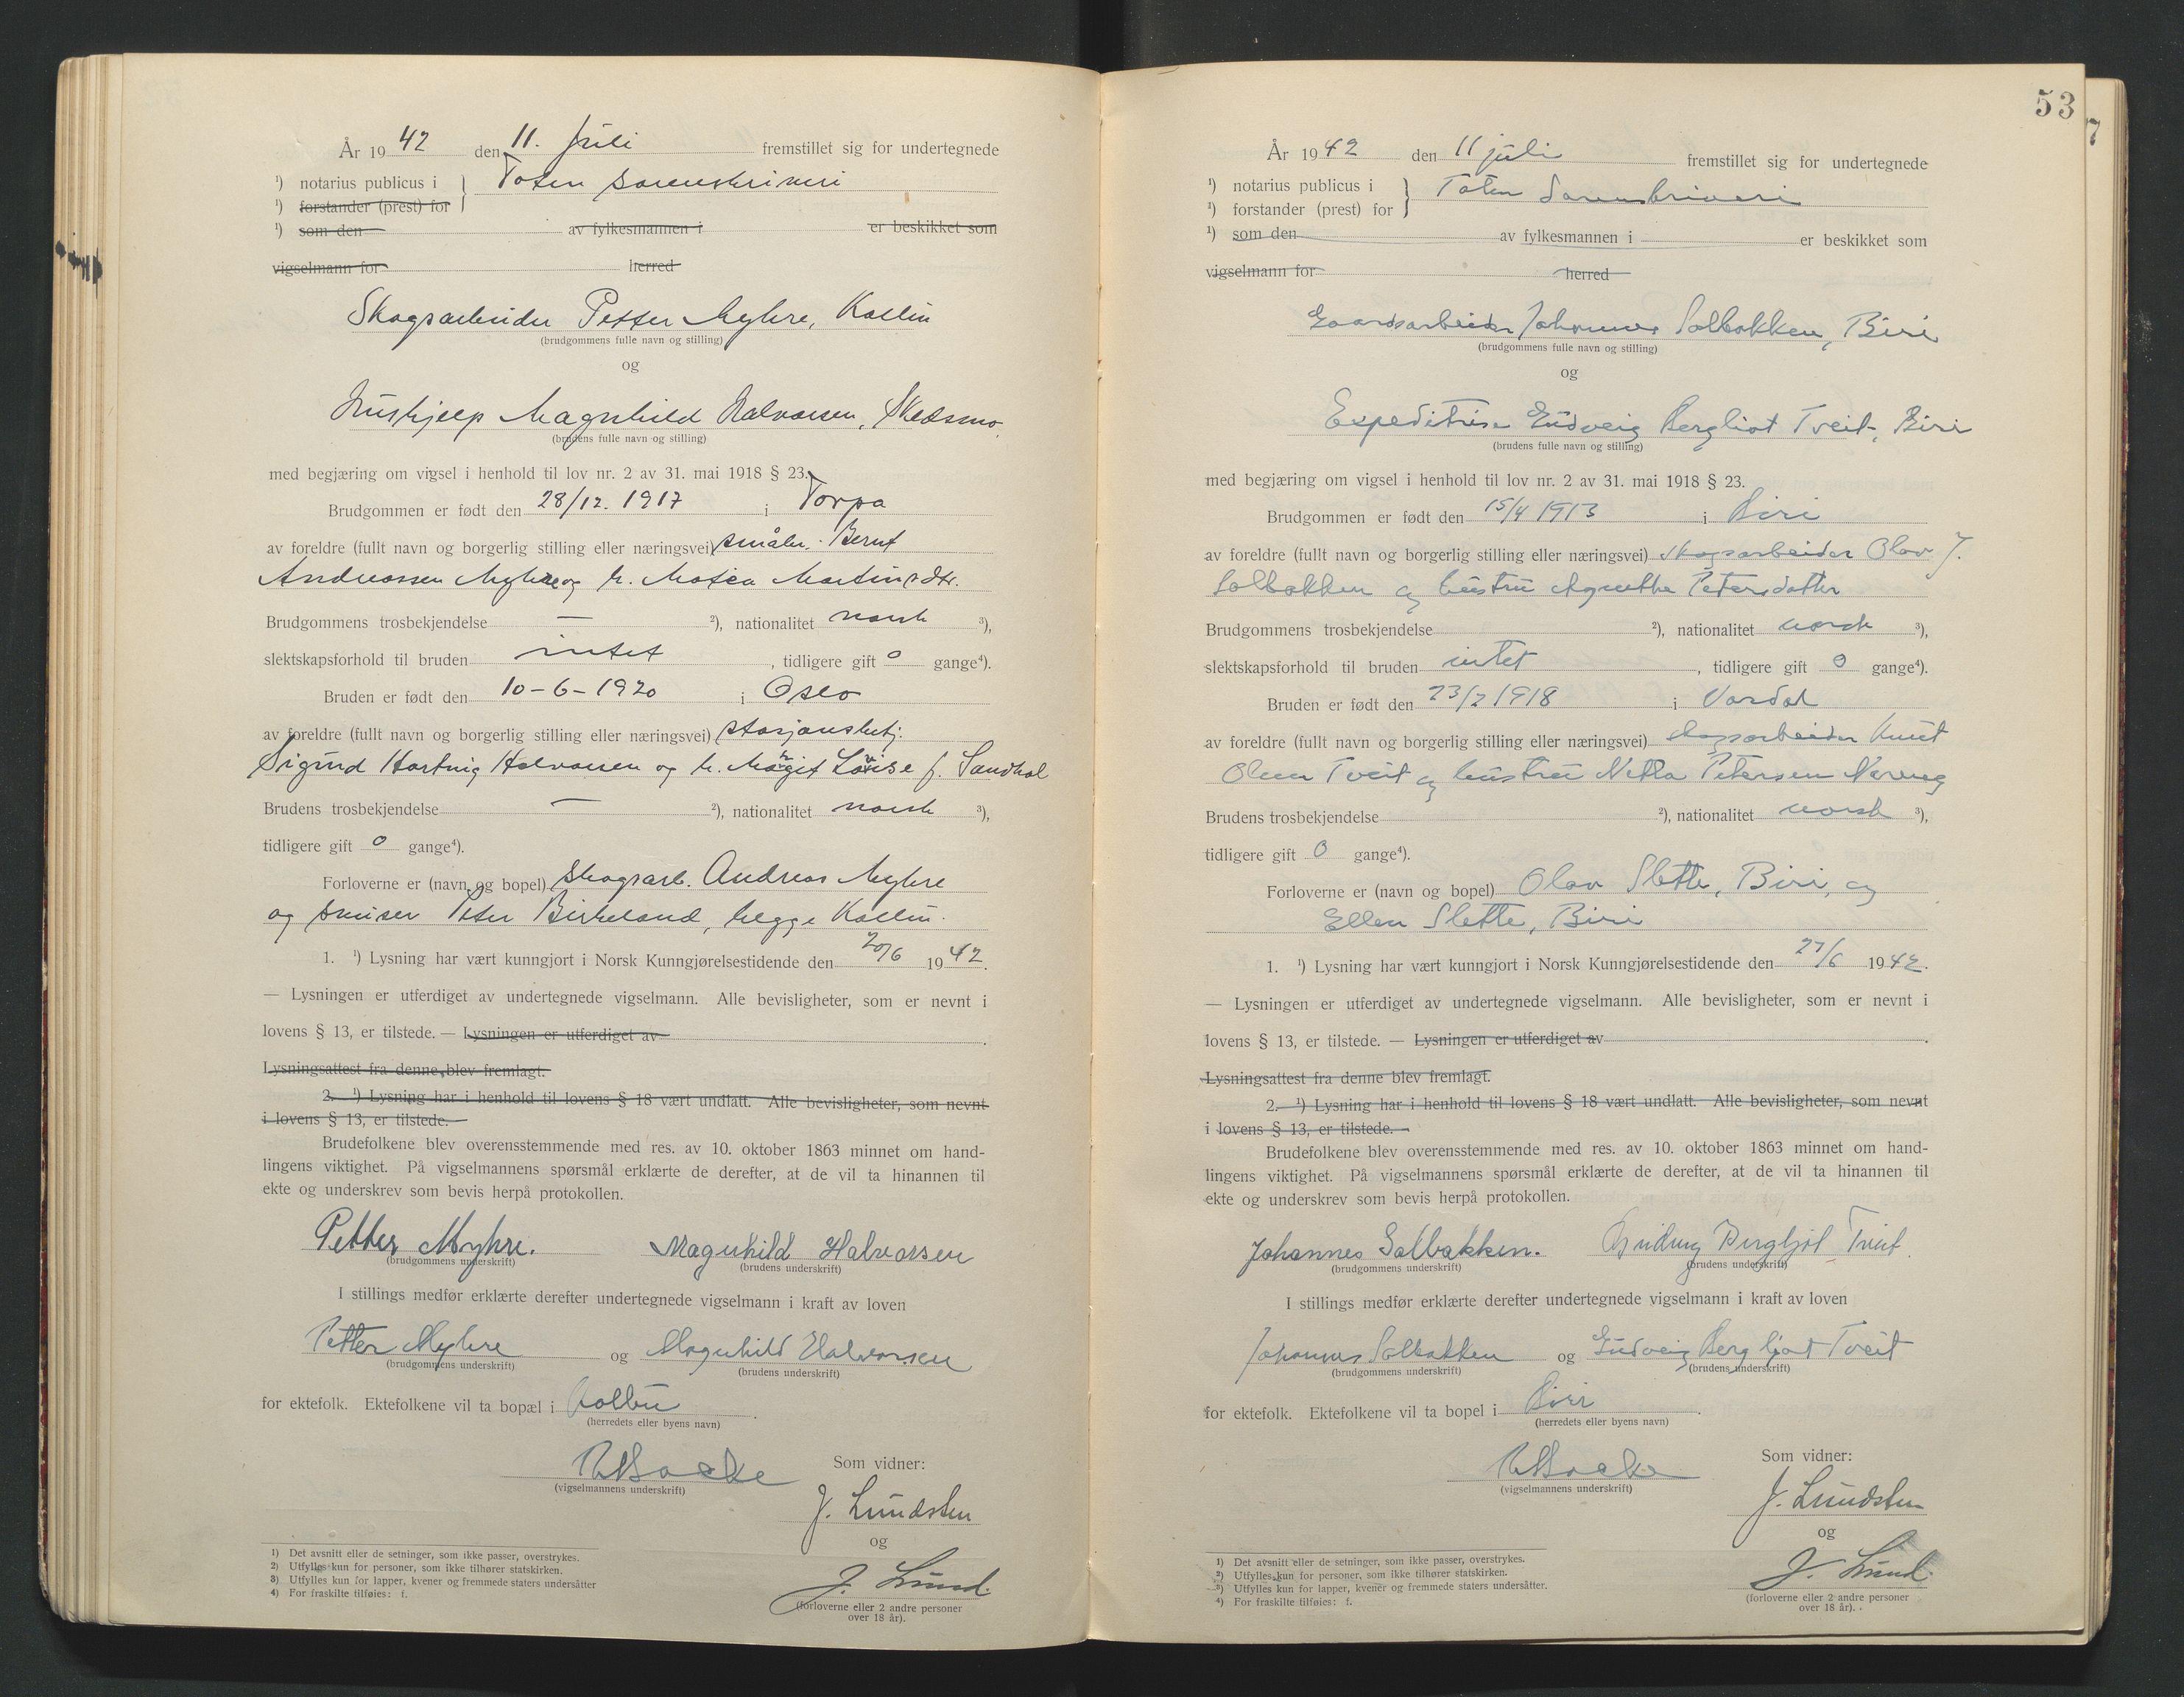 År 19 42 den 11. Juli fremstillet sig for undertegnede
¹) notarius publicus i Toten sorenskriveri
¹) forstander (prest) for
¹) som den av fylkesmannen i er beskikket som
vigselmann for herred
Skogsarbeider Petter Myhre, Kolbu
(brudgommens fulle navn og stilling)
og
Hushjelp Magnhild Halvorsen, Skedsmo.
(brudens fulle navn og stilling)
med begjæring om vigsel i henhold til lov nr. 2 av 31. mai 1918 § 23.
Brudgommen er født den 28/12. 1917 i Torpa
av foreldre (fullt navn og borgerlig stilling eller næringsvei) småbr. Bernt
Andreassen Myhre og h. Matea Martinsdtr.
Brudgommens trosbekjendelse — ²), nationalitet norsk ³),
slektskapsforhold til bruden intet, tidligere gift 0 gange⁴).
Bruden er født den 10-6-1920 i Oslo
av foreldre (fullt navn og borgerlig stilling eller næringsvei) stasjonsbetj.
Sigurd Hartvig Halvorsen og h. Margit Lovise f. Sandhol
Brudens trosbekjendelse — ²), nationalitet norsk ³),
tidligere gift 0 gange⁴).
Forloverne er (navn og bopel) skogsarb. Andreas Myhre
og Peter Birkeland, begge Kolbu.
1. ¹) Lysning har vært kunngjort i Norsk Kunngjørelsestidende den 20/6 1942.
— Lysningen er utferdiget av undertegnede vigselmann. Alle bevisligheter, som er nevnt i
lovens § 13, er tilstede. — Lysningen er utferdiget av
Lysningsattest fra denne blev fremlagt.
2. ¹) Lysning har i henhold til lovens § 18 vært undlatt. Alle bevisligheter, som nevnt
i lovens § 13, er tilstede.
Brudefolkene blev overensstemmende med res. av 10. oktober 1863 minnet om hand-
lingens viktighet. På vigselmannens spørsmål erklærte de derefter, at de vil ta hinannen til
ekte og underskrev som bevis herpå protokollen.
Petter Myhre. Magnhild Halvorsen
(brudgommens underskrift) (brudens underskrift)
I stillings medfør erklærte derefter undertegnede vigselmann i kraft av loven
Petter Myhre og Magnhild Halvorsen
(brudgommens underskrift) (brudens underskrift)
for ektefolk. Ektefolkene vil ta bopæl i Kolbu.
(herredets eller byens navn)
Som vidner:
(vigselmannens underskrift)
J. Lundsten
og
J. Lund.
(forloverne eller 2 andre personer
over 18 år).
1) Det avsnitt eller de setninger, som ikke passer, overstrykes.
2) Utfylles kun for personer, som ikke tilhører statskirken.
3) Utfylles kun for lapper, kvener og fremmede staters undersåtter
4) For fraskilte tilføies: f.
53
7
År 19 42 den 11 juli fremstillet sig for undertegnede
¹) notarius publicus i Toten Sorenskriveri
¹) forstander (prest) for
¹) som den av fylkesmannen i er beskikket som
vigselmann for herred
Gaardsarbeider Johannes Solbakken, Biri
(brudgommens fulle navn og stilling)
og
Expeditrise Gudveig Bergliot Tveit, Biri
(brudens fulle navn og stilling)
med begjæring om vigsel i henhold til lov nr. 2 av 31. mai 1918 § 23.
Brudgommen er født den 15/4 1913 i Biri
av foreldre (fullt navn og borgerlig stilling eller næringsvei) skogsarbeider Olav J.
Solbakken og hustru Agnethe Petersdatter
Brudgommens trosbekjendelse ²), nationalitet norsk ³),
slektskapsforhold til bruden intet, tidligere gift 0 gange⁴).
Bruden er født den 23/2 1918 i Vardal
av foreldre (fullt navn og borgerlig stilling eller næringsvei) skogsarbeider Knut
Olsen Tveit og hustru Petersen
Brudens trosbekjendelse ²), nationalitet norsk ³),
tidligere gift 0 gange⁴).
Forloverne er (navn og bopel) Olav Slette, Biri, og
Ellen Slette, Biri
1. ¹) Lysning har vært kunngjort i Norsk Kunngjørelsestidende den 27/6 1942.
— Lysningen er utferdiget av undertegnede vigselmann. Alle bevisligheter, som er nevnt i
lovens § 13, er tilstede. — Lysningen er utferdiget av
Lysningsattest fra denne blev fremlagt.
2. ¹) Lysning har i henhold til lovens § 18 vært undlatt. Alle bevisligheter, som nevnt
i lovens § 13, er tilstede.
Brudefolkene blev overensstemmende med res. av 10. oktober 1863 minnet om hand-
lingens viktighet. På vigselmannens spørsmål erklærte de derefter, at de vil ta hinannen til
ekte og underskrev som bevis herpå protokollen.
Johannes Solbakken. Gudveig Bergljot Tveit.
(brudgommens underskrift) (brudens underskrift)
I stillings medfør erklærte derefter undertegnede vigselmann i kraft av loven
Johannes Solbakken og Gudveig Bergliot Tveit
(brudgommens underskrift) (brudens underskrift)
for ektefolk. Ektefolkene vil ta bopel i Biri.
(herredets eller byens navn)
Som vidner:
(vigselmannens underskrift)
J. Lundsten
og
J. Lund.
(forloverne eller 2 andre personer
over 18 år).
1) Det avsnitt eller de setninger, som ikke passer, overstrykes.
2) Utfylles kun for personer, som ikke tilhører statskirken.
3) Utfylles kun for lapper, kvener og fremmede staters undersåtter.
4) For fraskilte tilføies: f.